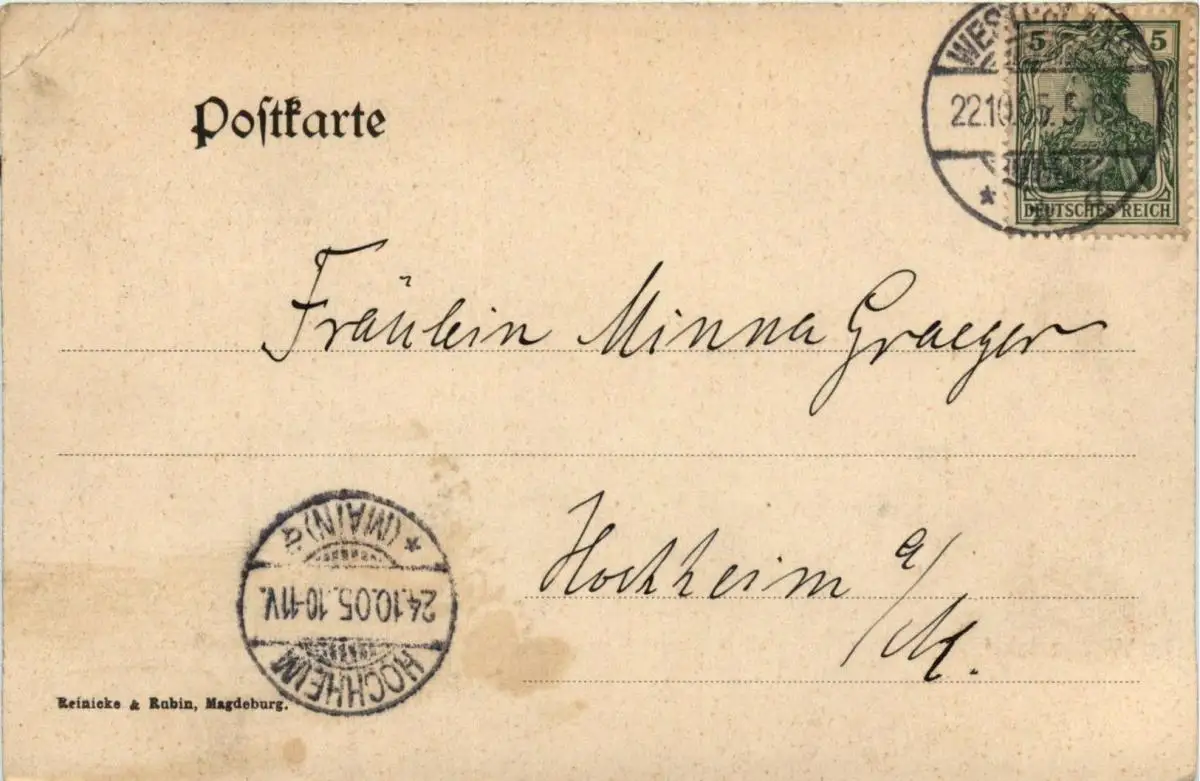 Postkarte
5 5
22.10.05. 5-6
DEUTSCHES REICH
Fräulein Minna Graeger
Hochheim a/M.
* (MAIN) a
24.10.05. 10-11V.
HOCHHEIM
Reinicke & Rubin, Magdeburg.